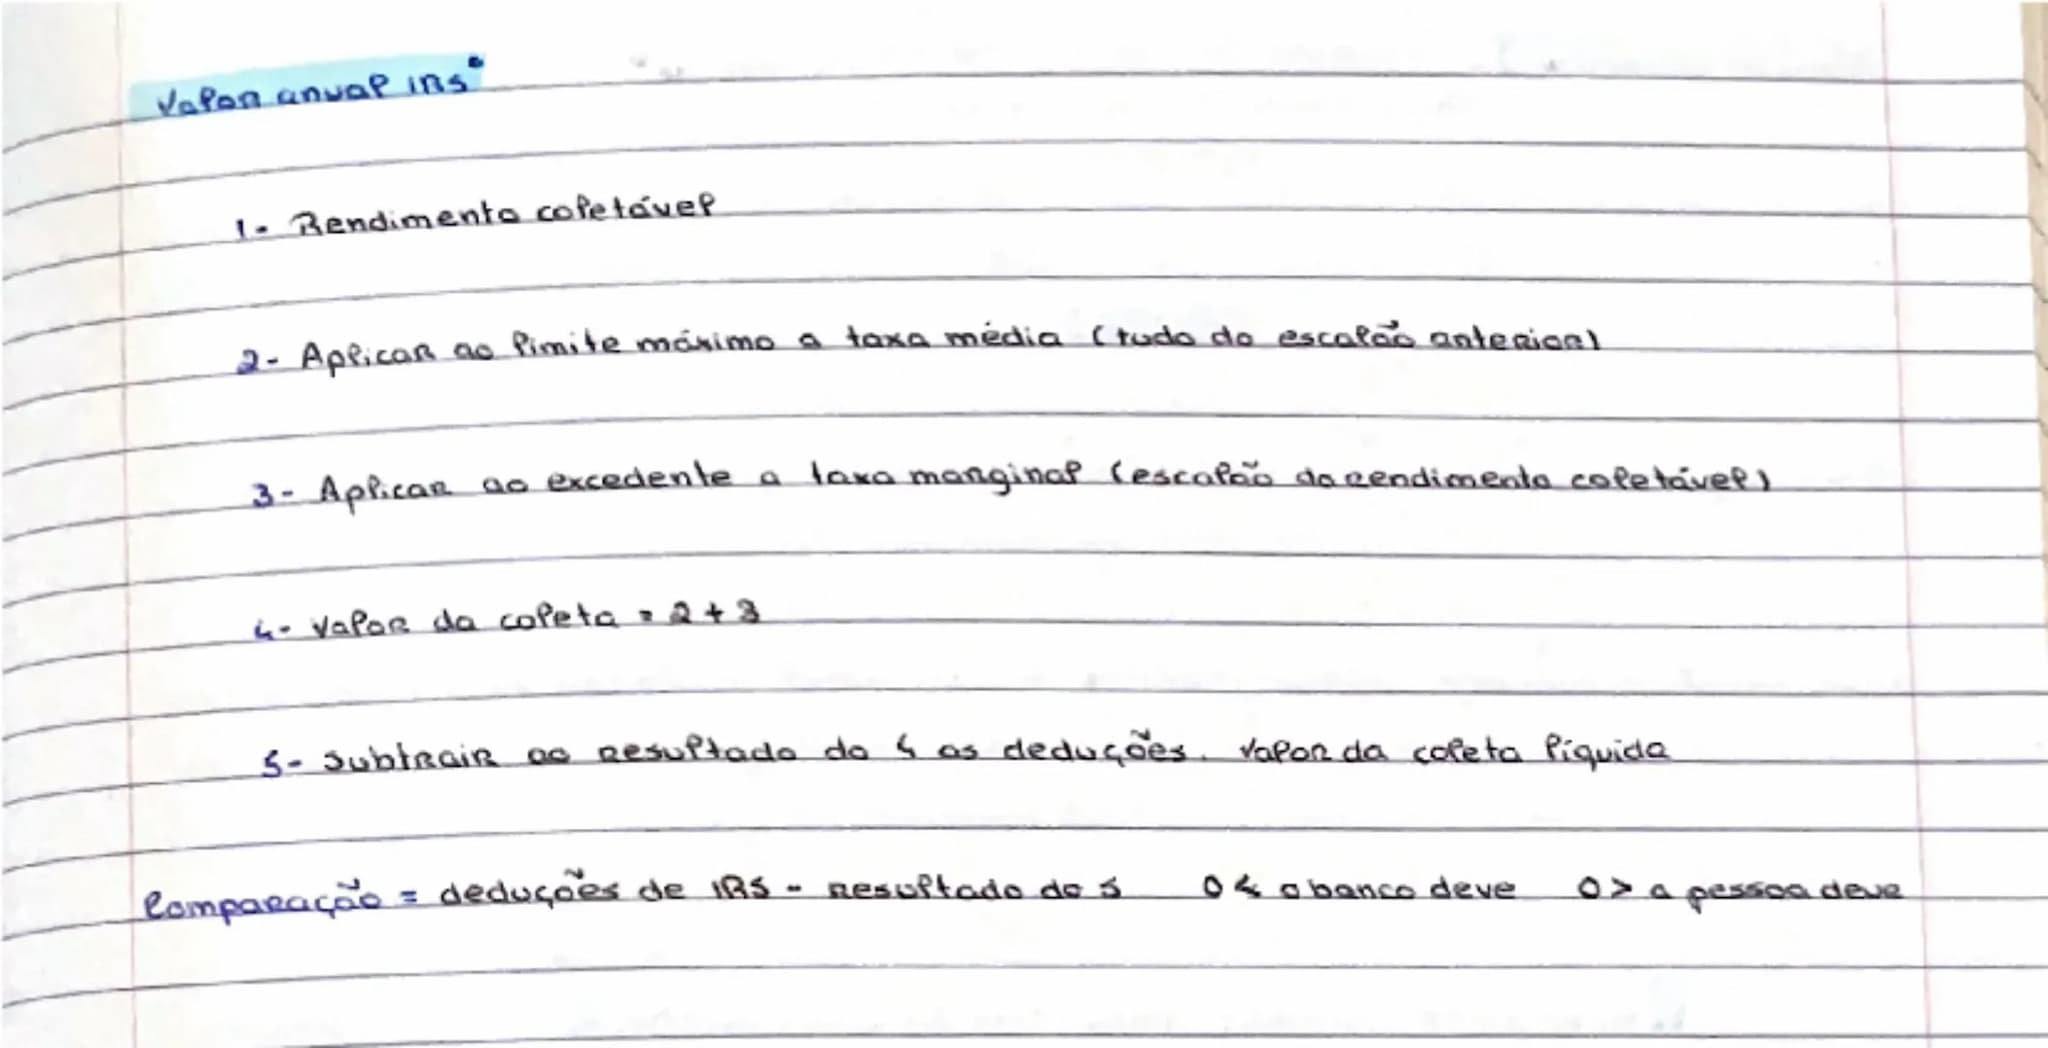 Valor anual IRS
1- Rendimento coletável
2- Aplicar ao limite máximo a taxa média (tudo do escalão anterior)
3- Aplicar ao excedente a taxa marginal (escalão do rendimento coletável)
4- Valor da coleta = 2 + 3
5- Subtrair ao resultado do 4 as deduções. Valor da coleta líquida
Comparação = deduções de IRS - resultado do 5 0 < o banco deve 0 > a pessoa deve